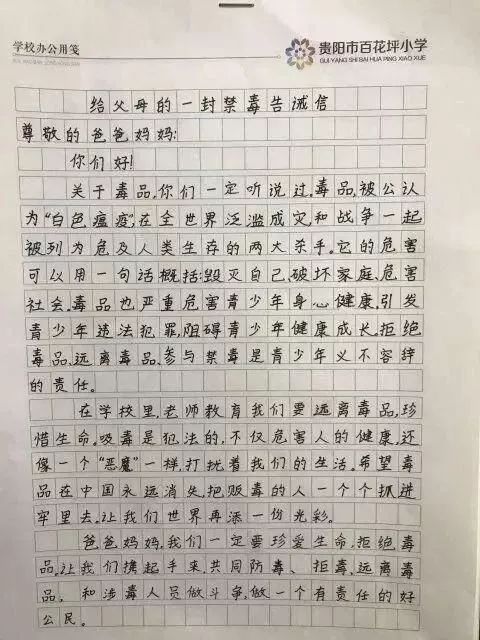 学校办公用笺
贵阳市百花坪小学
GUI YANG SHI BAI HUA PING XIAO XUE
给父母的一封禁毒告诫信
尊敬的爸爸妈妈:
你们好!
关于毒品,你们一定听说过。毒品,被公认
为“白色瘟疫”,在全世界泛滥成灾,和战争一起
被列为危及人类生存的两大杀手。它的危害
可以用一句话概括:毁灭自己、破坏家庭、危害
社会。毒品也严重危害青少年身心健康,引发
青少年违法犯罪,阻碍青少年健康成长。拒绝
毒品,远离毒品,参与禁毒是青少年义不容辞
的责任。
在学校里,老师教育我们要远离毒品,珍
惜生命。吸毒是犯法的,不仅危害人的健康,还
像一个“恶魔”一样,打扰着我们的生活。希望毒
品在中国永远消失,把贩毒的人一个个抓进
牢里去,让我们世界再添一份光彩。
爸爸妈妈,我们一定要珍爱生命,拒绝毒
品。让我们携起手来,共同防毒、拒毒,远离毒
品,和涉毒人员做斗争,做一个有责任的好
公民。